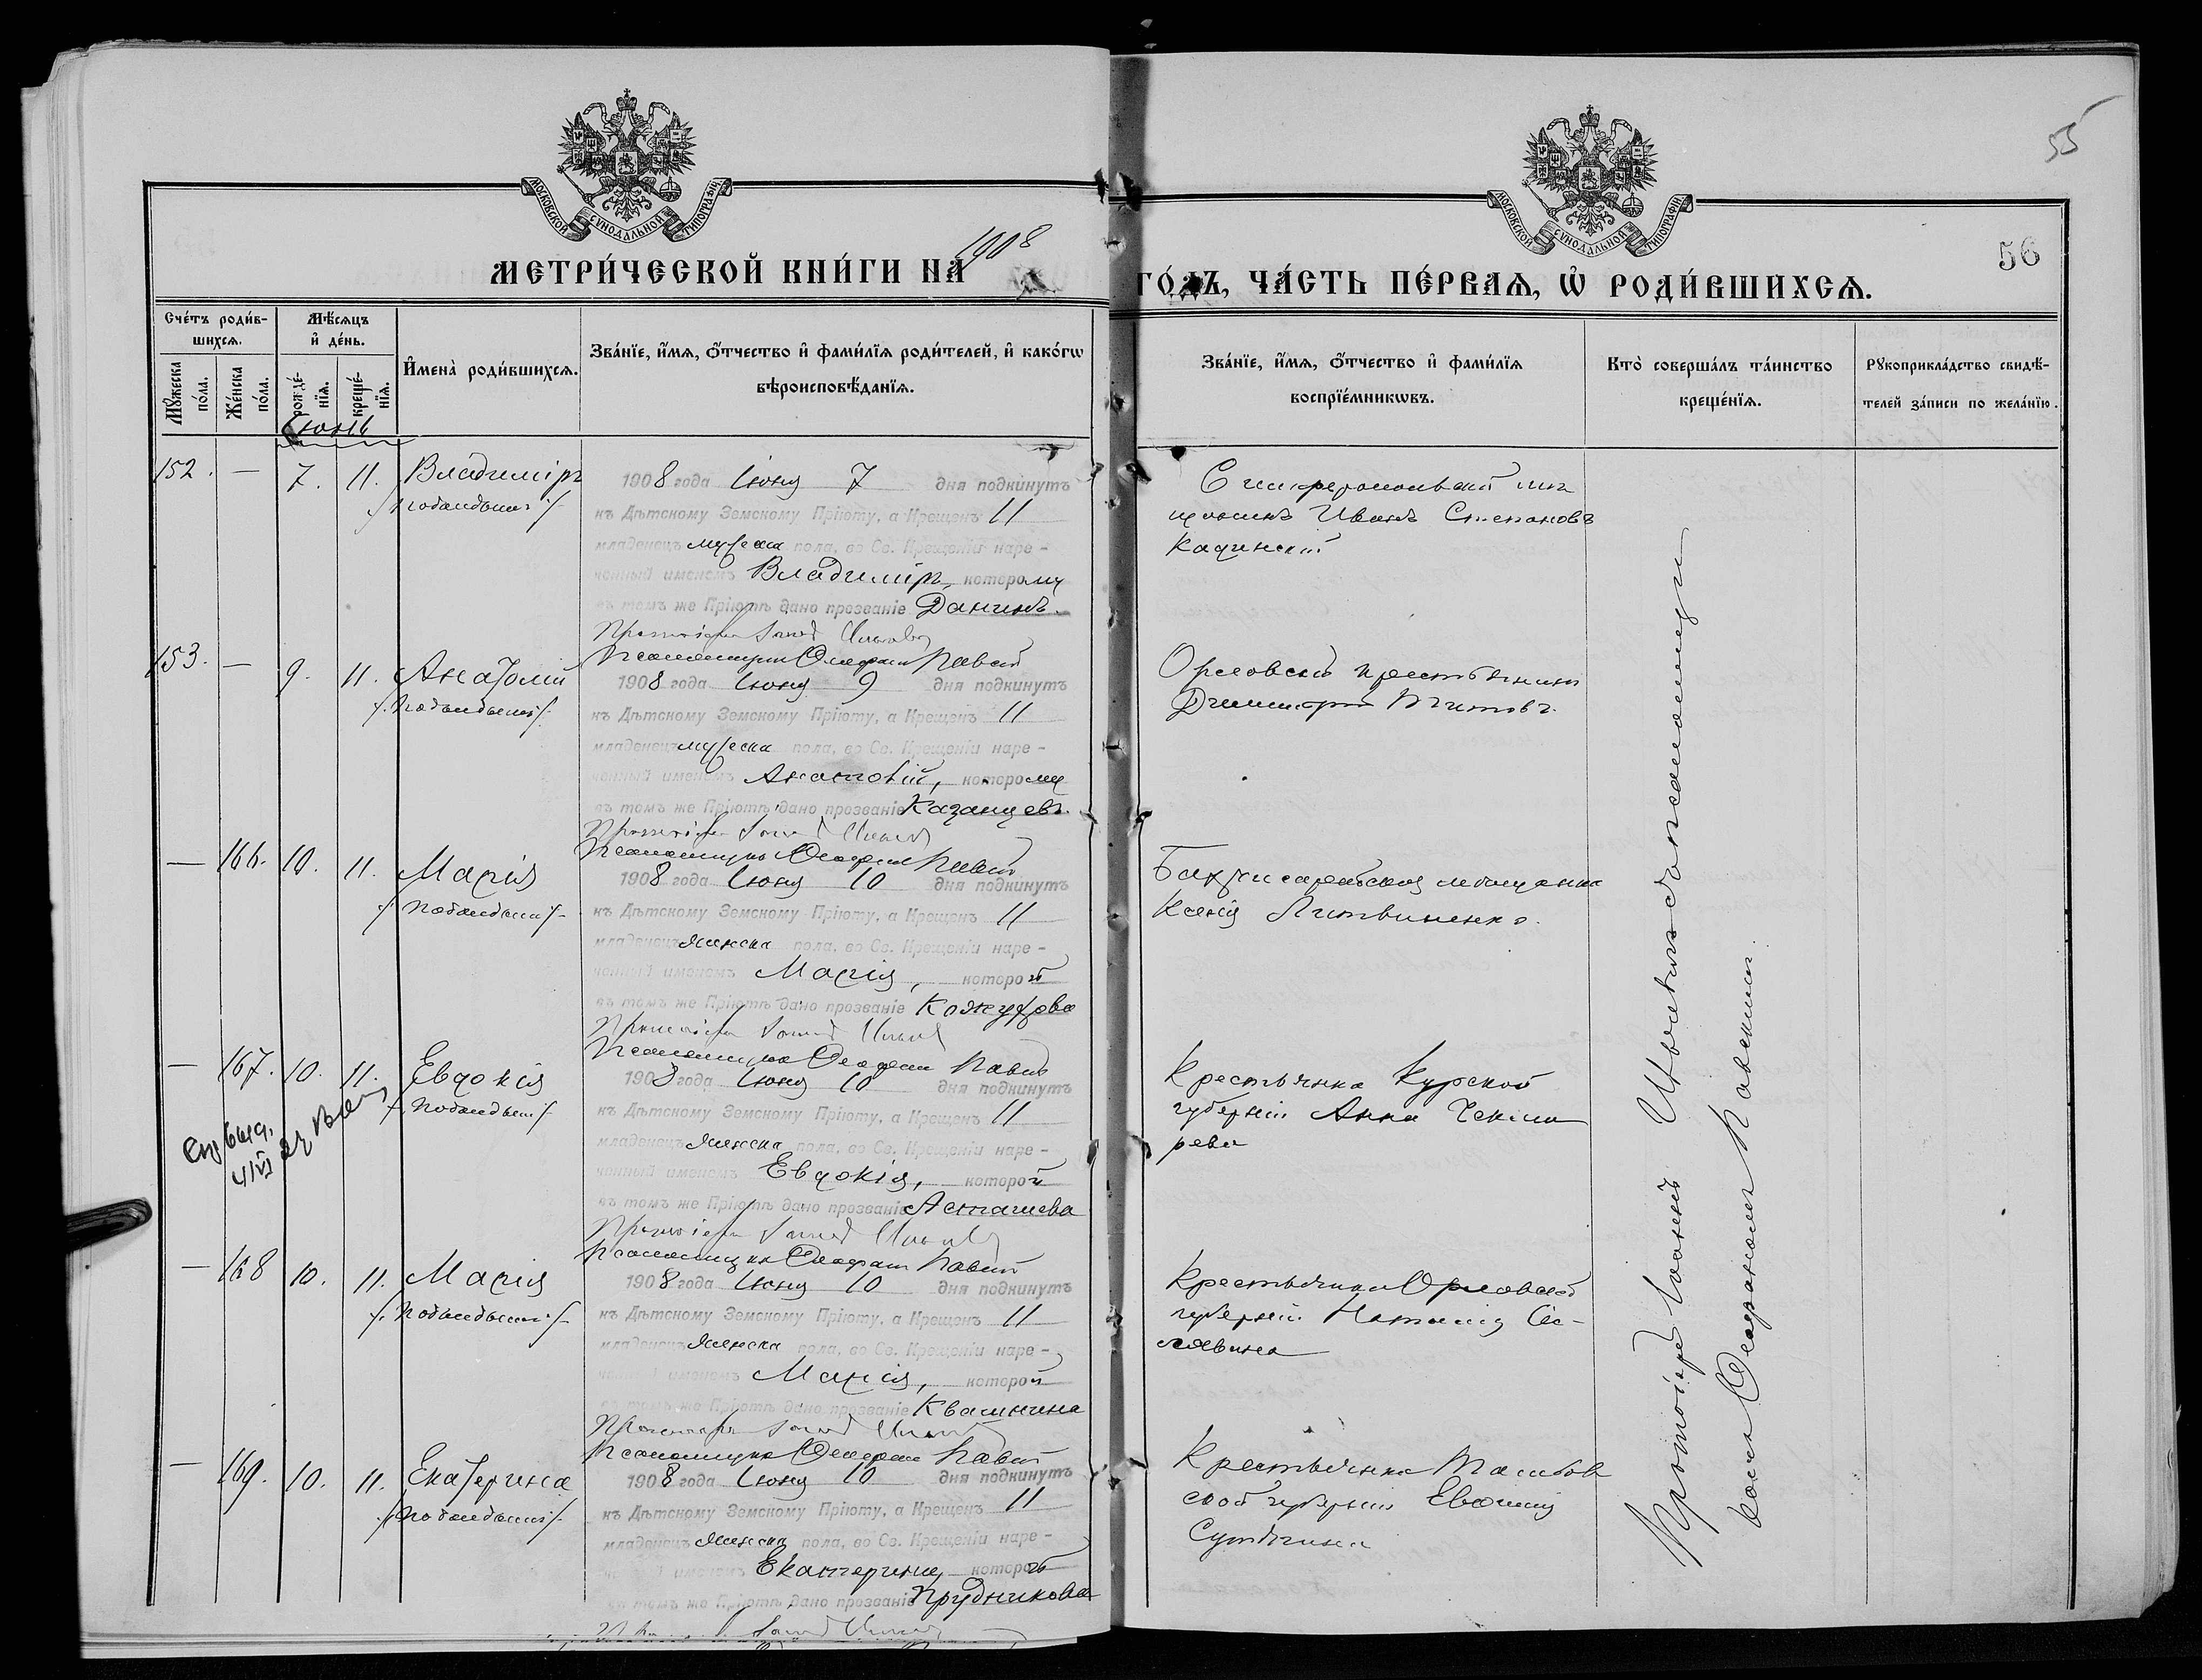 55
МОСКОВСКОЙ СУНОДАЛЬНОЙ ТИПОГРАФІИ
МОСКОВСКОЙ СУНОДАЛЬНОЙ ТИПОГРАФІИ
56
МЕТРИ́ЧЕСКОЙ КНИ́ГИ НА 1908
ГО́ДЪ, ЧА́СТЬ ПЕ́РВАѦ, Ѡ҆ РОДИ́ВШИХСѦ.
Сче́тъ роди́в-
шихсѧ.
Мꙋ́жеска по́ла.
Же́нска по́ла.
Мѣ́сѧцъ
и҆ де́нь.
рожде́-
нїѧ.
креще́-
нїѧ.
И҆мена̀ роди́вшихсѧ.
Зва́нїе, и҆́мѧ, ѻ҆́тчество и҆ фами́лїѧ роди́телей, и҆ како́гѡ
вѣроисповѣ́данїѧ.
Зва́нїе, и҆́мѧ, ѻ҆́тчество и҆ фами́лїѧ
воспрїе́мникѡвъ.
Кто̀ соверша́лъ та́инство
креще́нїѧ.
Рꙋкоприкла́дство свидѣ́-
телей за́писи по жела́нїю.
Іюнь
152. — 7. 11. Владиміръ
/подкидышъ/
1908 года Іюня 7 дня подкинутъ
къ Дѣтскому Земскому Пріюту, а Крещенъ 11
младенецъ мужеска пола, во Св. Крещеніи наре-
ченный именемъ Владиміръ, которому
въ томъ же Пріютѣ дано прозваніе Данинъ.
Псаломщикъ
Симферопольскій мѣ
щанинъ Иванъ Степановъ
153. — 9. 11. Анатолій
/подкидышъ/
1908 года Іюня 9 дня подкинутъ
къ Дѣтскому Земскому Пріюту, а Крещенъ 11
младенецъ мужеска пола, во Св. Крещеніи наре-
ченный именемъ Анатолій, которому
въ томъ же Пріютѣ дано прозваніе Казанцевъ.
Псаломщикъ
Орловскій крестьянинъ
Димитрій Титовъ.
— 166. 10. 11. Марія
/подкидышъ/
1908 года Іюня 10 дня подкинутъ
къ Дѣтскому Земскому Пріюту, а Крещенъ 11
младенецъ женска пола, во Св. Крещеніи наре-
ченный именемъ Марія, которой
въ томъ же Пріютѣ дано прозваніе Кожухова
Псаломщикъ
Бахчисарайская мѣщанка
Ксенія Литвиненко.
— 167. 10. 11. Евдокія
/подкидышъ/
1908 года Іюня 10 дня подкинутъ
къ Дѣтскому Земскому Пріюту, а Крещенъ 11
младенецъ женска пола, во Св. Крещеніи наре-
ченный именемъ Евдокія, которой
въ томъ же Пріютѣ дано прозваніе Асташева
Псаломщикъ
Крестьянка Курской
губерніи Анна
— 168 10. 11. Марія
/подкидышъ/
1908 года Іюня 10 дня подкинутъ
къ Дѣтскому Земскому Пріюту, а Крещенъ 11
младенецъ женска пола, во Св. Крещеніи наре-
ченный именемъ Марія, которой
въ томъ же Пріютѣ дано прозваніе Квашнина
Псаломщикъ
Крестьянка Орловской
губерніи Наталія
— 169. 10. 11. Екатерина
/подкидышъ/
1908 года Іюня 10 дня подкинутъ
къ Дѣтскому Земскому Пріюту, а Крещенъ 11
младенецъ женска пола, во Св. Крещеніи наре-
Екатерина, которой
въ томъ же Пріютѣ дано прозваніе Прудникова
Крестьянка Тамбов
ской губерніи
Протоіерей Іоаннъ съ псаломщи
комъ